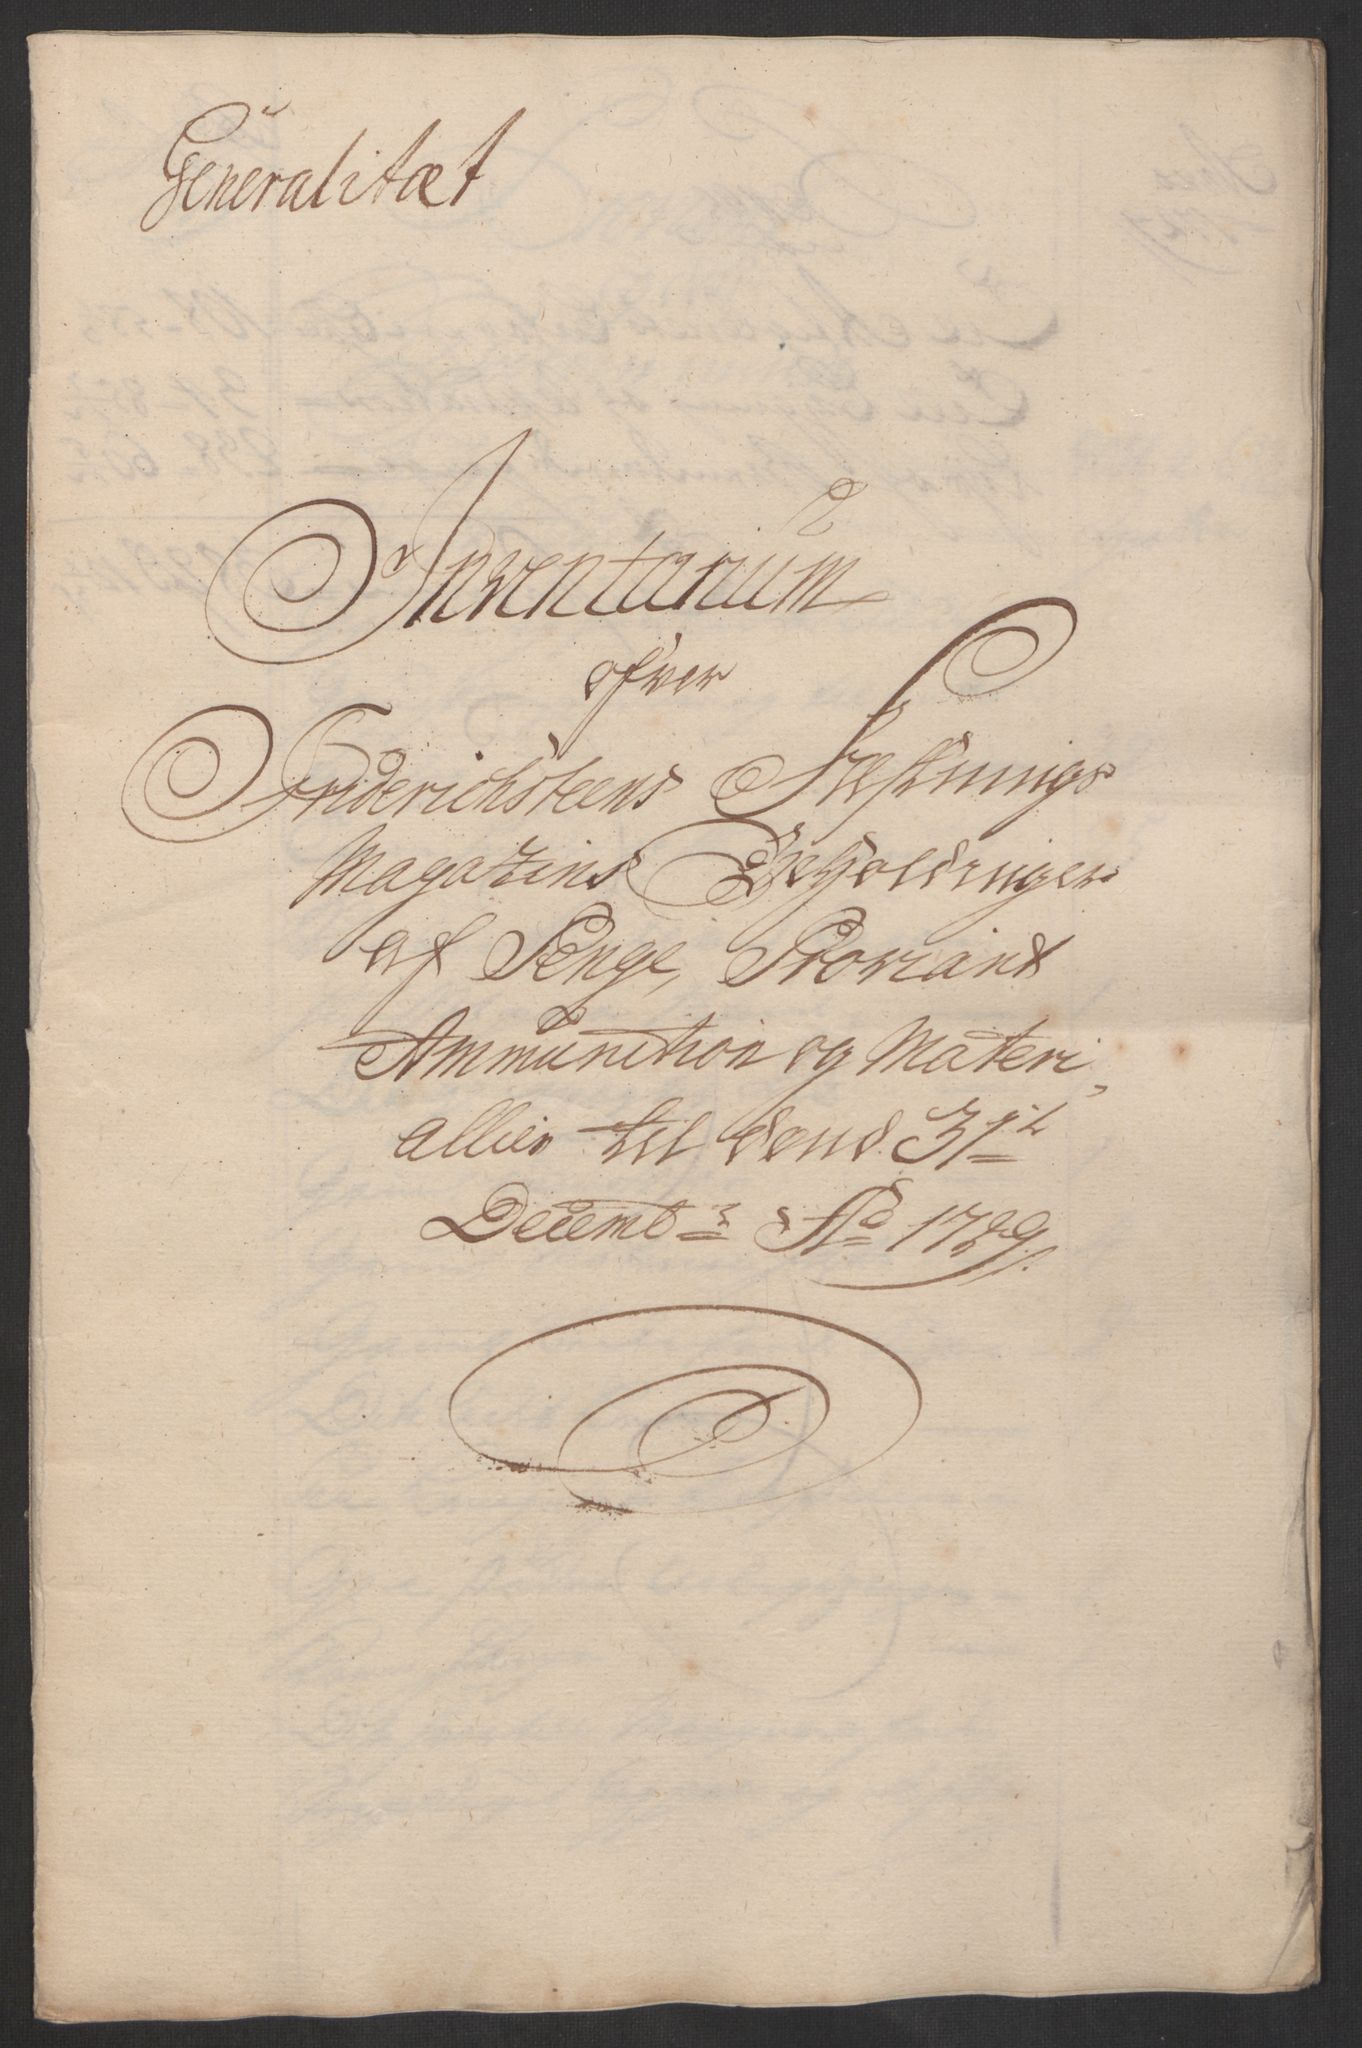 Generalitæt
Inventarium
ofver
Friderichsteens Fæstnings
Magazins Beholdninger
af Penge, Proviant
Ammunition og Materi,
allier til dend 31te
Decembr: Ao 1729.